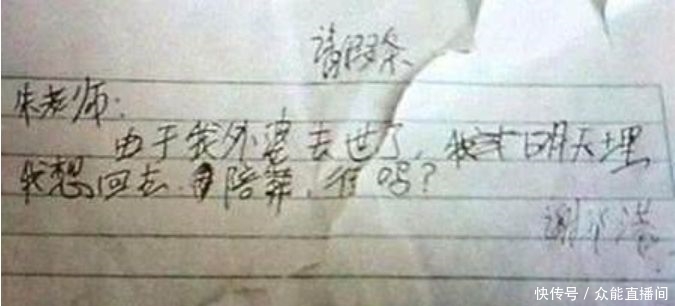 请假条
朱老师:
由于我外婆去世了,我明天埋
我想回去陪葬,行吗?
谢
快传号 / 众能直播间